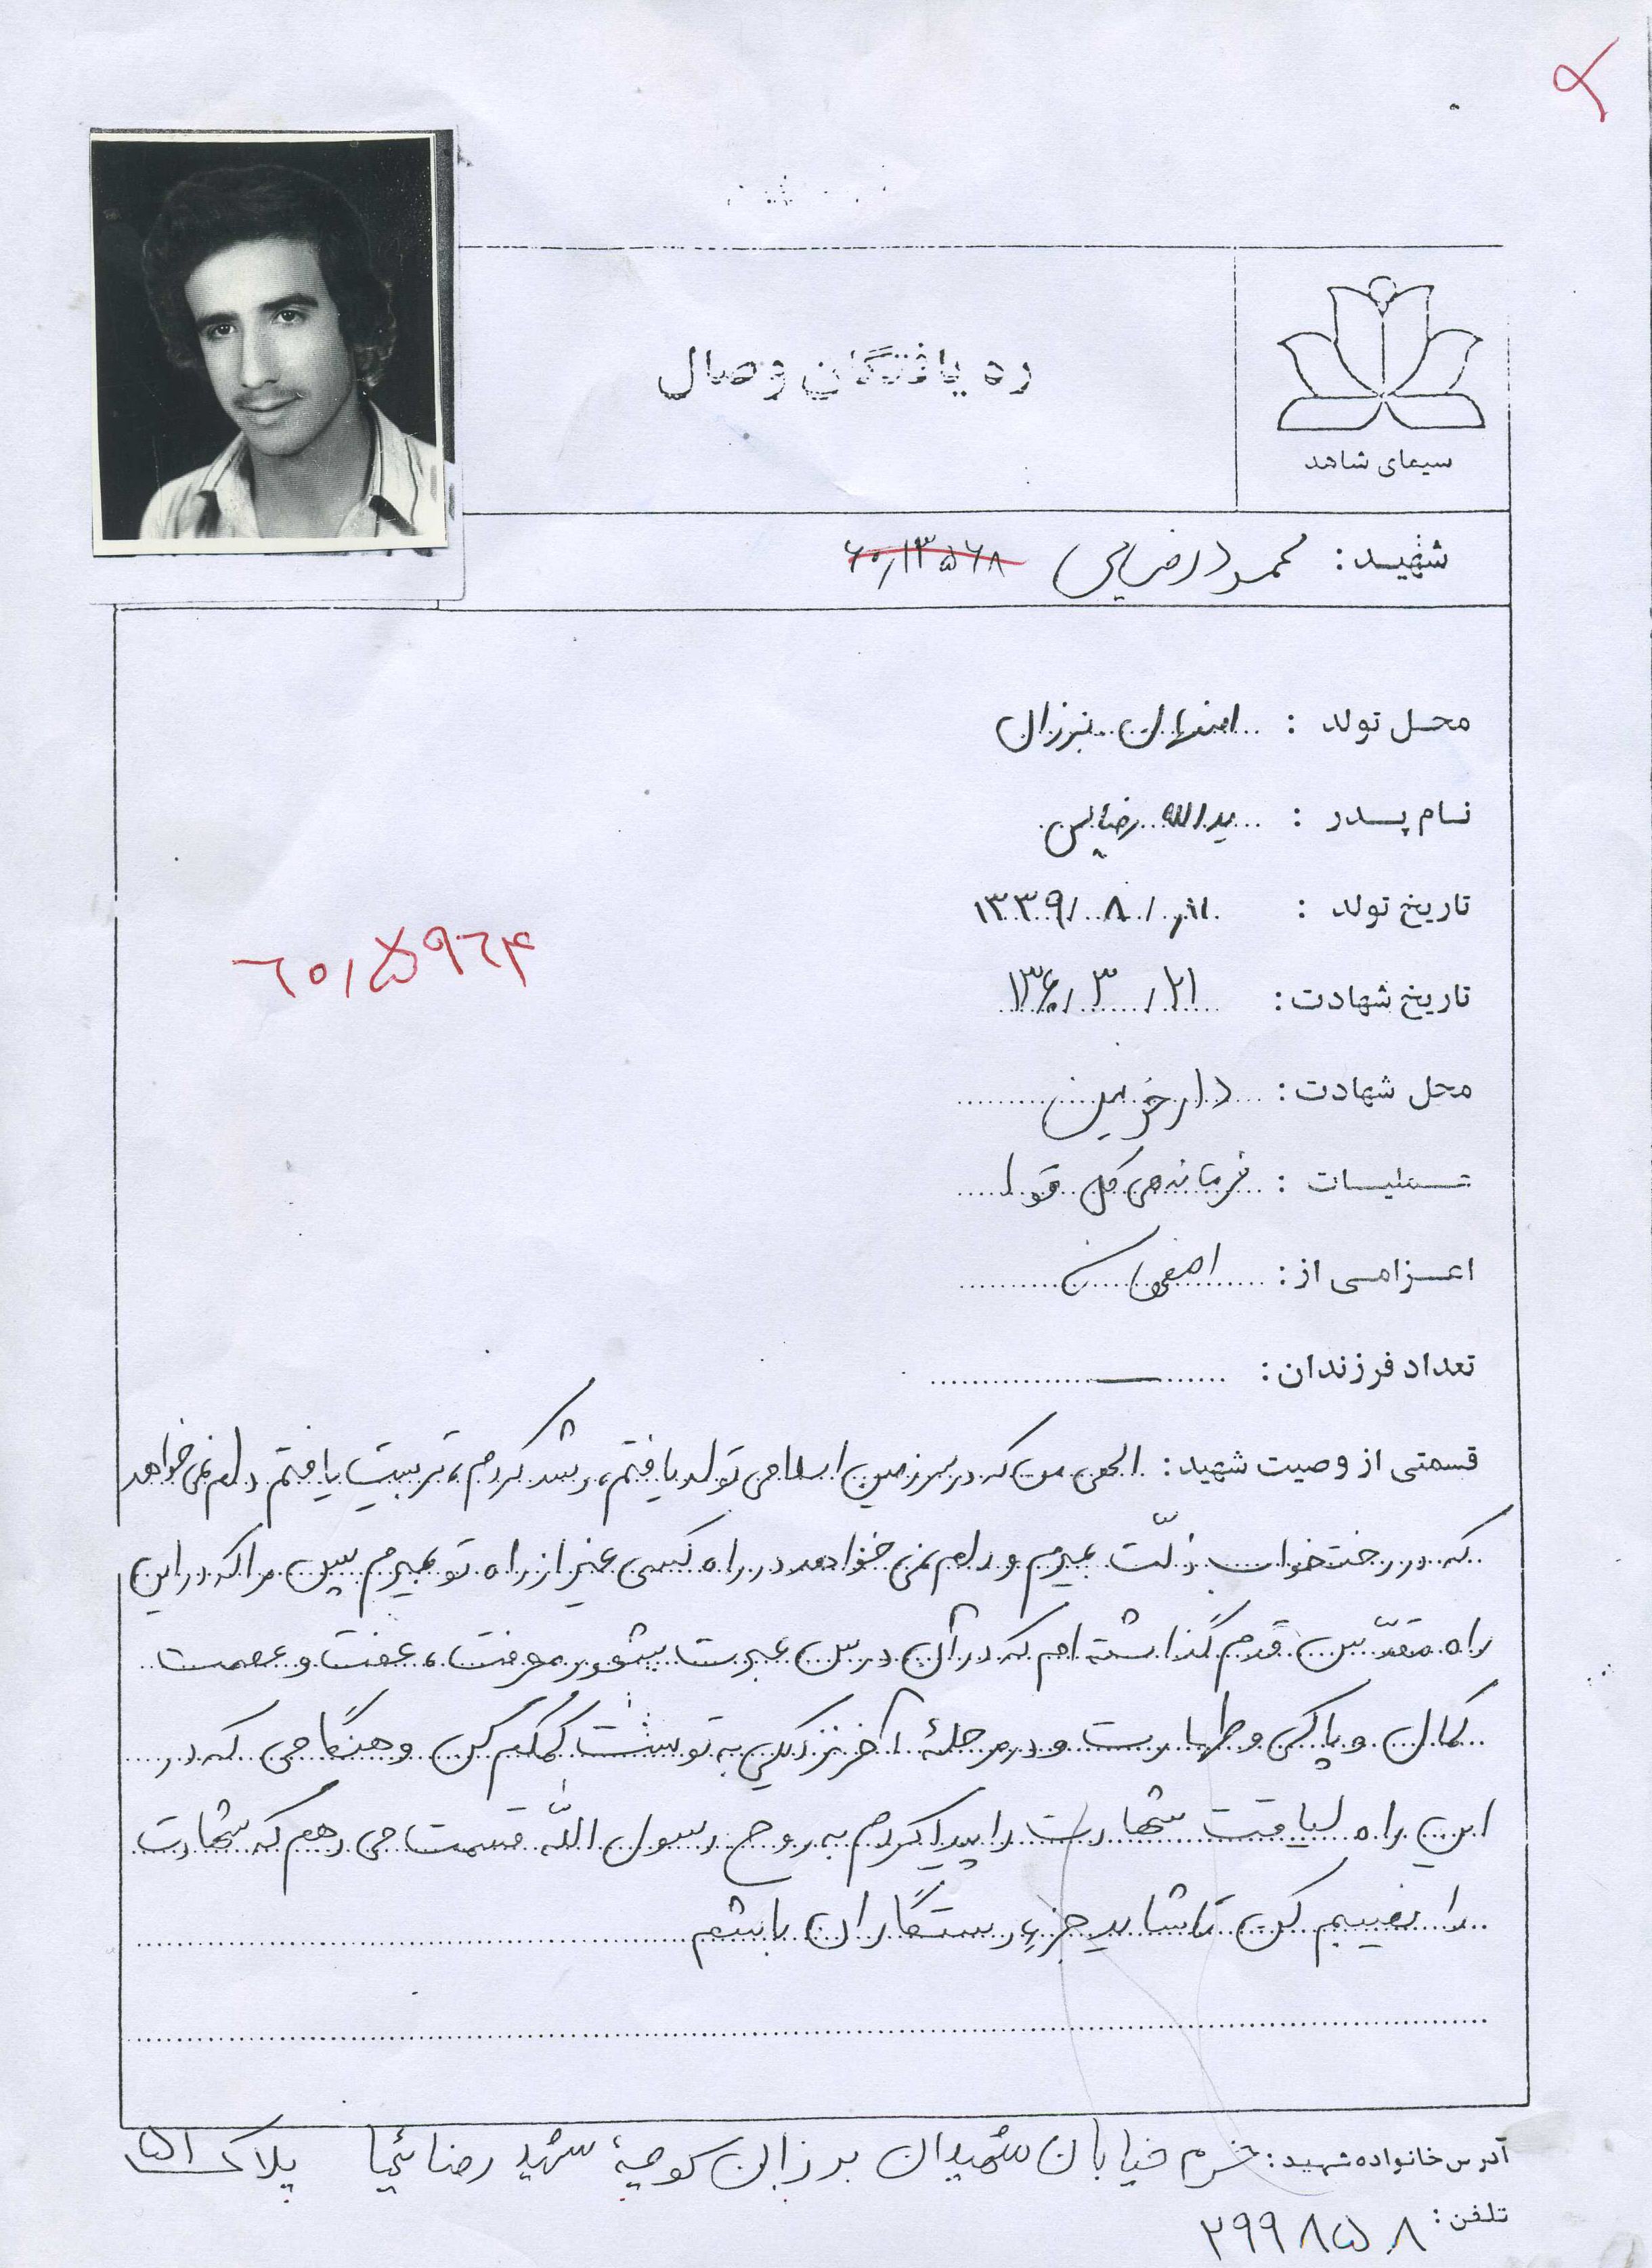 ره یافتگان وصال
سیمای شاهد
شهید: محمود رضایی ۶۰٫۱۳۵۶۸
محل تولد: اصفهان برزان
نام پدر: یدالله رضایی
تاریخ تولد: ۱۳۳۹/۸/
۶۰٫۵۹۶۴
تاریخ شهادت: ۲۱/۳/۱۳۶۰
محل شهادت: دارخوین
عملیات: فرمانده‌ی کل قوا
اعزامی از: اصفهان
تعداد فرزندان: —
قسمتی از وصیت شهید: الهی من که در سرزمین اسلامی تولد یافتم، رشد کردم، تربیت یافتم دلم نمی‌خواهد
که در رختخواب ذلّت بمیرم و دلم نمی‌خواهد در راه کسی غیر از راه تو بمیرم پس مرا که در این
راه مقدّس قدم گذاشته‌ام که در آن درس عبرت معرفت، عفت و عصمت
کمال و پاکی و طهارت و در مرحلهٔ آخر نزدیکی به توست کمکم کن و هنگامی که در
این راه لیاقت شهادت را پیدا کردم به روح رسول اللّه قسمت می‌دهم که شهادت
را نصیبم کن تا شاید جزء رستگاران باشم
آدرس خانواده شهید: خرم خیابان شهیدان برزان کوچهٔ شهید رضائی پلاک ۵۱
تلفن: ۲۹۹۸۵۸